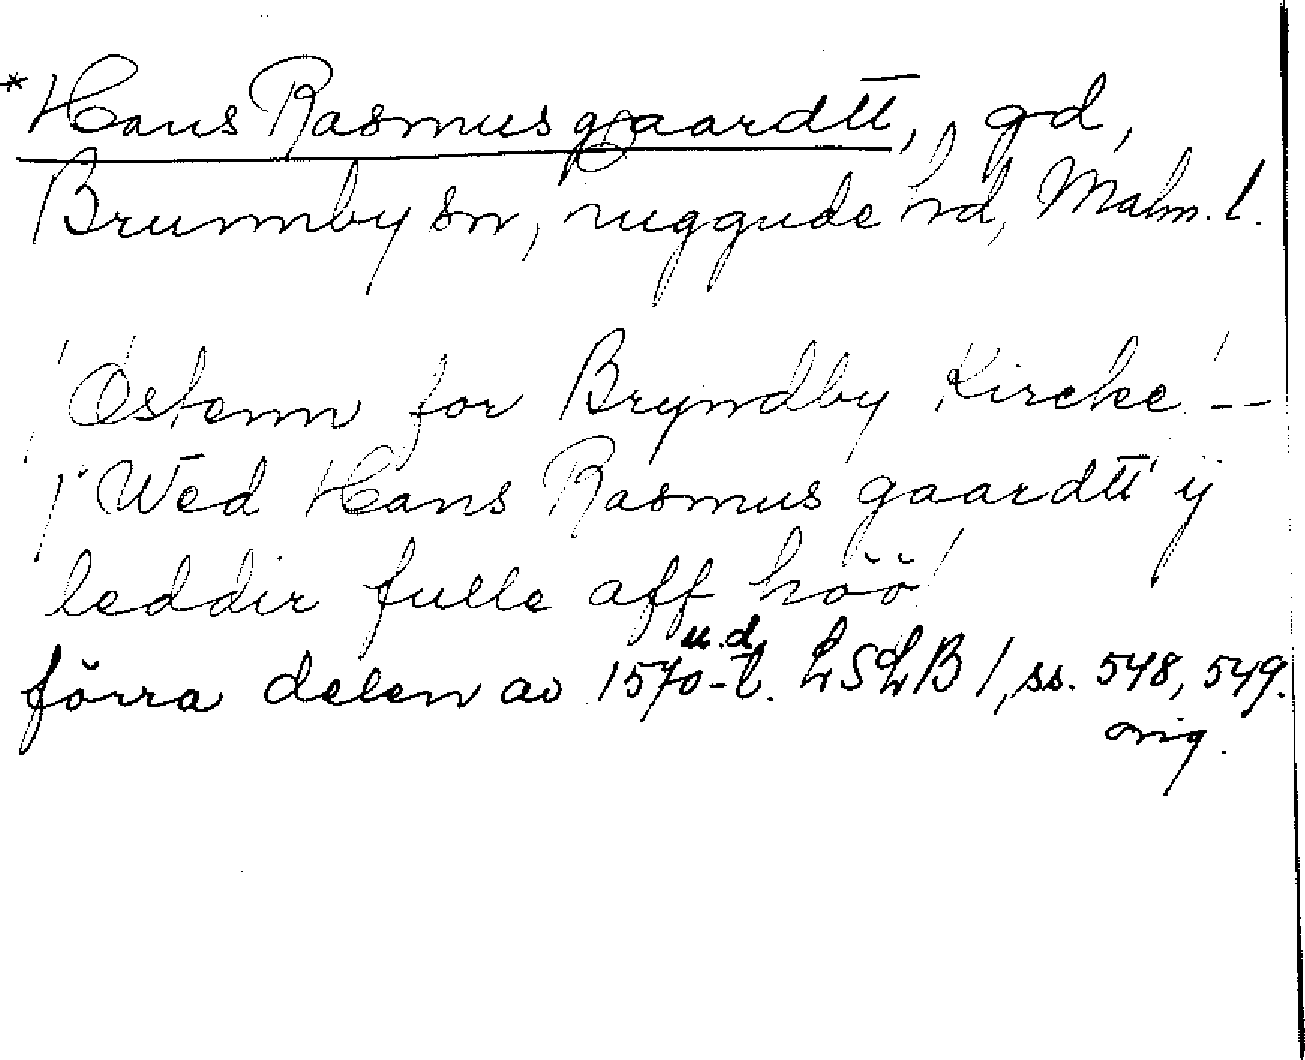 * Hans Rasmus gaardtt, gd,
Brunnby sn, Luggude hd, Malm. l.
'Østenn for Bryndby Kircke' _
'Wed Hans Rasmus gaardtt ij
leddir fulle aff höö'
förra delen av 1570-t. u.d. LSLB 1, ss. 548, 549.
orig.